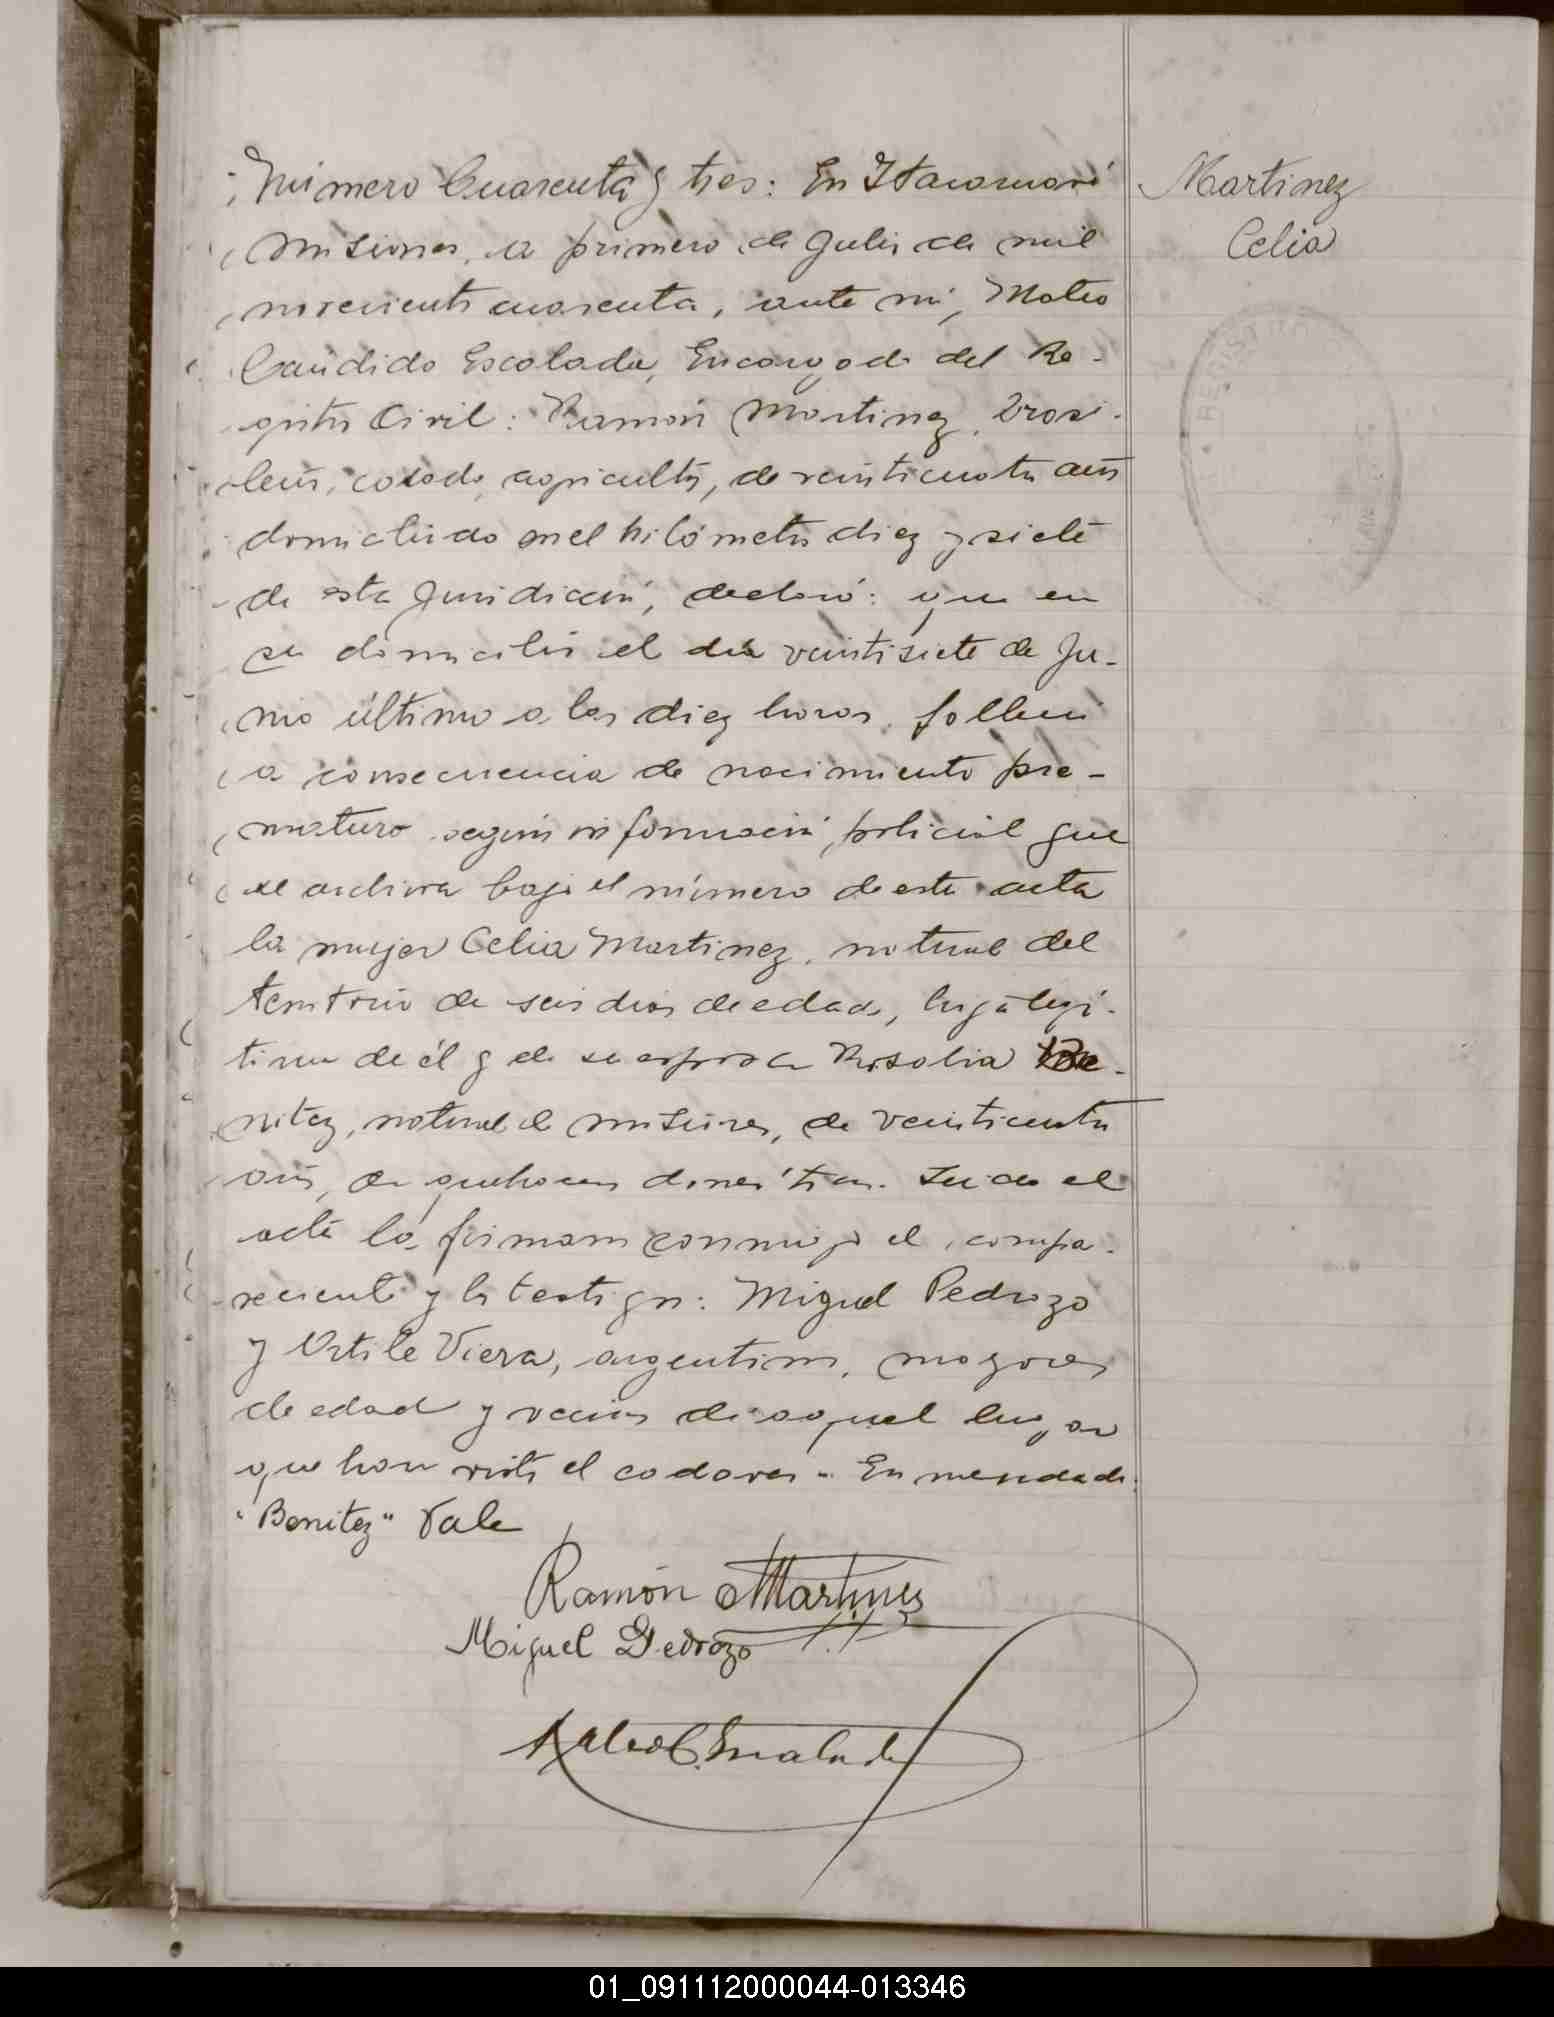 Número Cuarenta y tres: En Itacaruaré
Martinez
Celia
Misiones, a primero de Julio de mil
novecientos cuarenta, ante mi, Mateo
Cándido Escalada, Encargado del Re-
gistro Civil: Ramón Martinez, brasi-
leño, casado, agricultor, de veinticuatro años
domiciliado en el kilómetro diez y siete
de esta Jurisdicción, declaró: que en
su domicilio el dia veintisiete de Ju-
nio último a las diez horas, falleció
a consecuencia de nacimiento pre-
maturo según información policial que
se archiva bajo el número de esta acta
la mujer Celia Martinez, natural del
territorio de seis dias de edad, hija legí-
tima de él y de su esposa Rosalia Be-
nitez, natural de Misiones, de veinticuatro
años, de quehaceres domésticos. Leida el
acta la firmaron conmigo el compa-
reciente y los testigos: Miguel Pedrozo
y Viera, argentinos, mayores
de edad y vecinos de aquel lugar
que han visto el cadaver - Enmendado:
"Benitez" Vale
Ramón Martines
Miguel Pedrozo
Mateo C. Escalada
REGISTRO
01_091112000044-013346